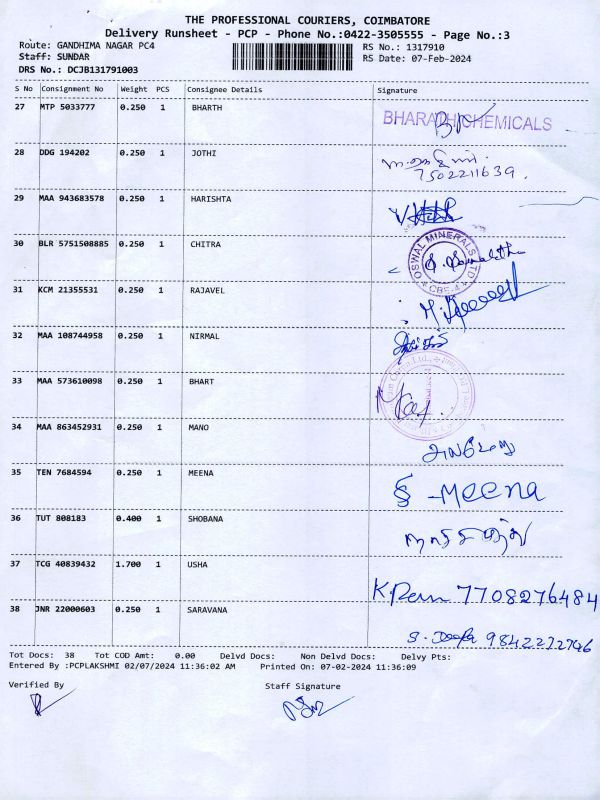 THE PROFESSIONAL COURIERS, COIMBATORE
Delivery Runsheet - PCP - Phone No.:0422-3505555 - Page No.:3
Route: GANDHIMA NAGAR PC4 RS No.: 1317910
Staff: SUNDAR RS Date: 07-Feb-2024
DRS No.: DCJB131791003
S No Consignment No Weight PCS Consignee Details Signature
27 MTP 5033777 0.250 1 BHARTH BHARATHI CHEMICALS
28 DDG 194202 0.250 1 JOTHI
7502211639.
29 MAA 943683578 0.250 1 HARISHTA
30 BLR 5751508885 0.250 1 CHITRA OSWAL MINERALS LTD CBE-4
31 KCM 21355531 0.250 1 RAJAVEL
32 MAA 108744958 0.250 1 NIRMAL
33 MAA 573610098 0.250 1 BHART
34 MAA 863452931 0.250 1 MANO
35 TEN 7684594 0.250 1 MEENA Meena
36 TUT 808183 0.400 1 SHOBANA
37 TCG 40839432 1.700 1 USHA 7708276484
38 JNR 22000603 0.250 1 SARAVANA 9842272796
Tot Docs: 38 Tot COD Amt: 0.00 Delvd Docs: Non Delvd Docs: Delvy Pts:
Entered By :PCPLAKSHMI 02/07/2024 11:36:02 AM Printed On: 07-02-2024 11:36:09
Verified By Staff Signature